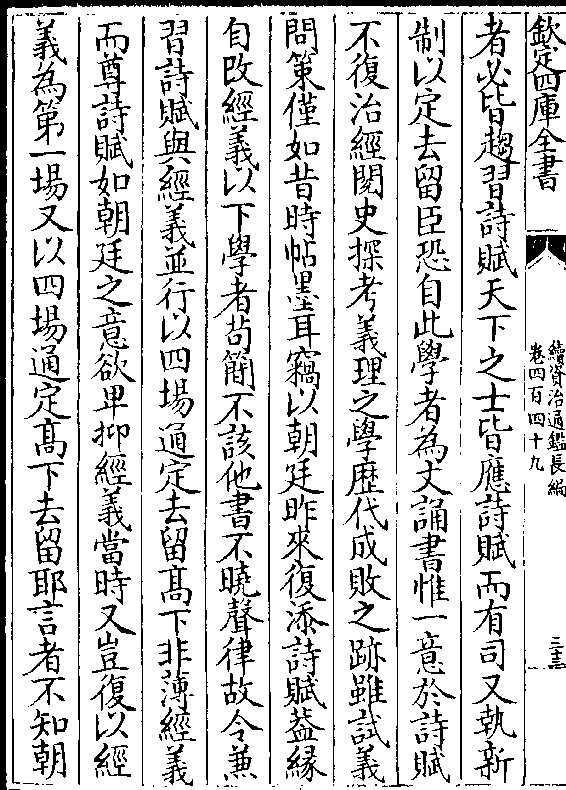 欽定四庫全書
續資治通鑑長編
卷四百四十九
二十三
者必皆趨習詩賦天下之士皆應詩賦而有司又執新
制以定去留臣恐自此學者為文誦書惟一意於詩賦
不復治經閱史探考義理之學歷代成敗之跡雖試義
問策僅如昔時帖墨耳竊以朝廷昨來復添詩賦葢緣
自改經義以下學者苟簡不該他書不曉聲律故令兼
習詩賦與經義並行以四場通定去留髙下非薄經義
而尊詩賦如朝廷之意欲卑抑經義當時又豈復以經
義為第一場又以四場通定髙下去留耶言者不知朝